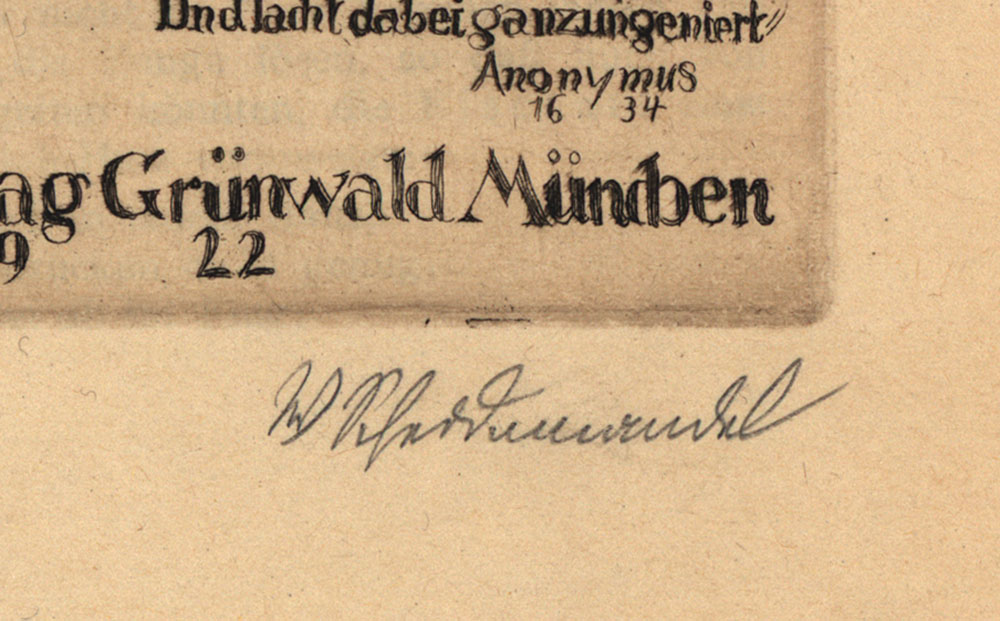 Und lacht dabei ganz ungeniert"
Anonymus
16 34
ag Grünwald München
9 22
W Scheddemandel